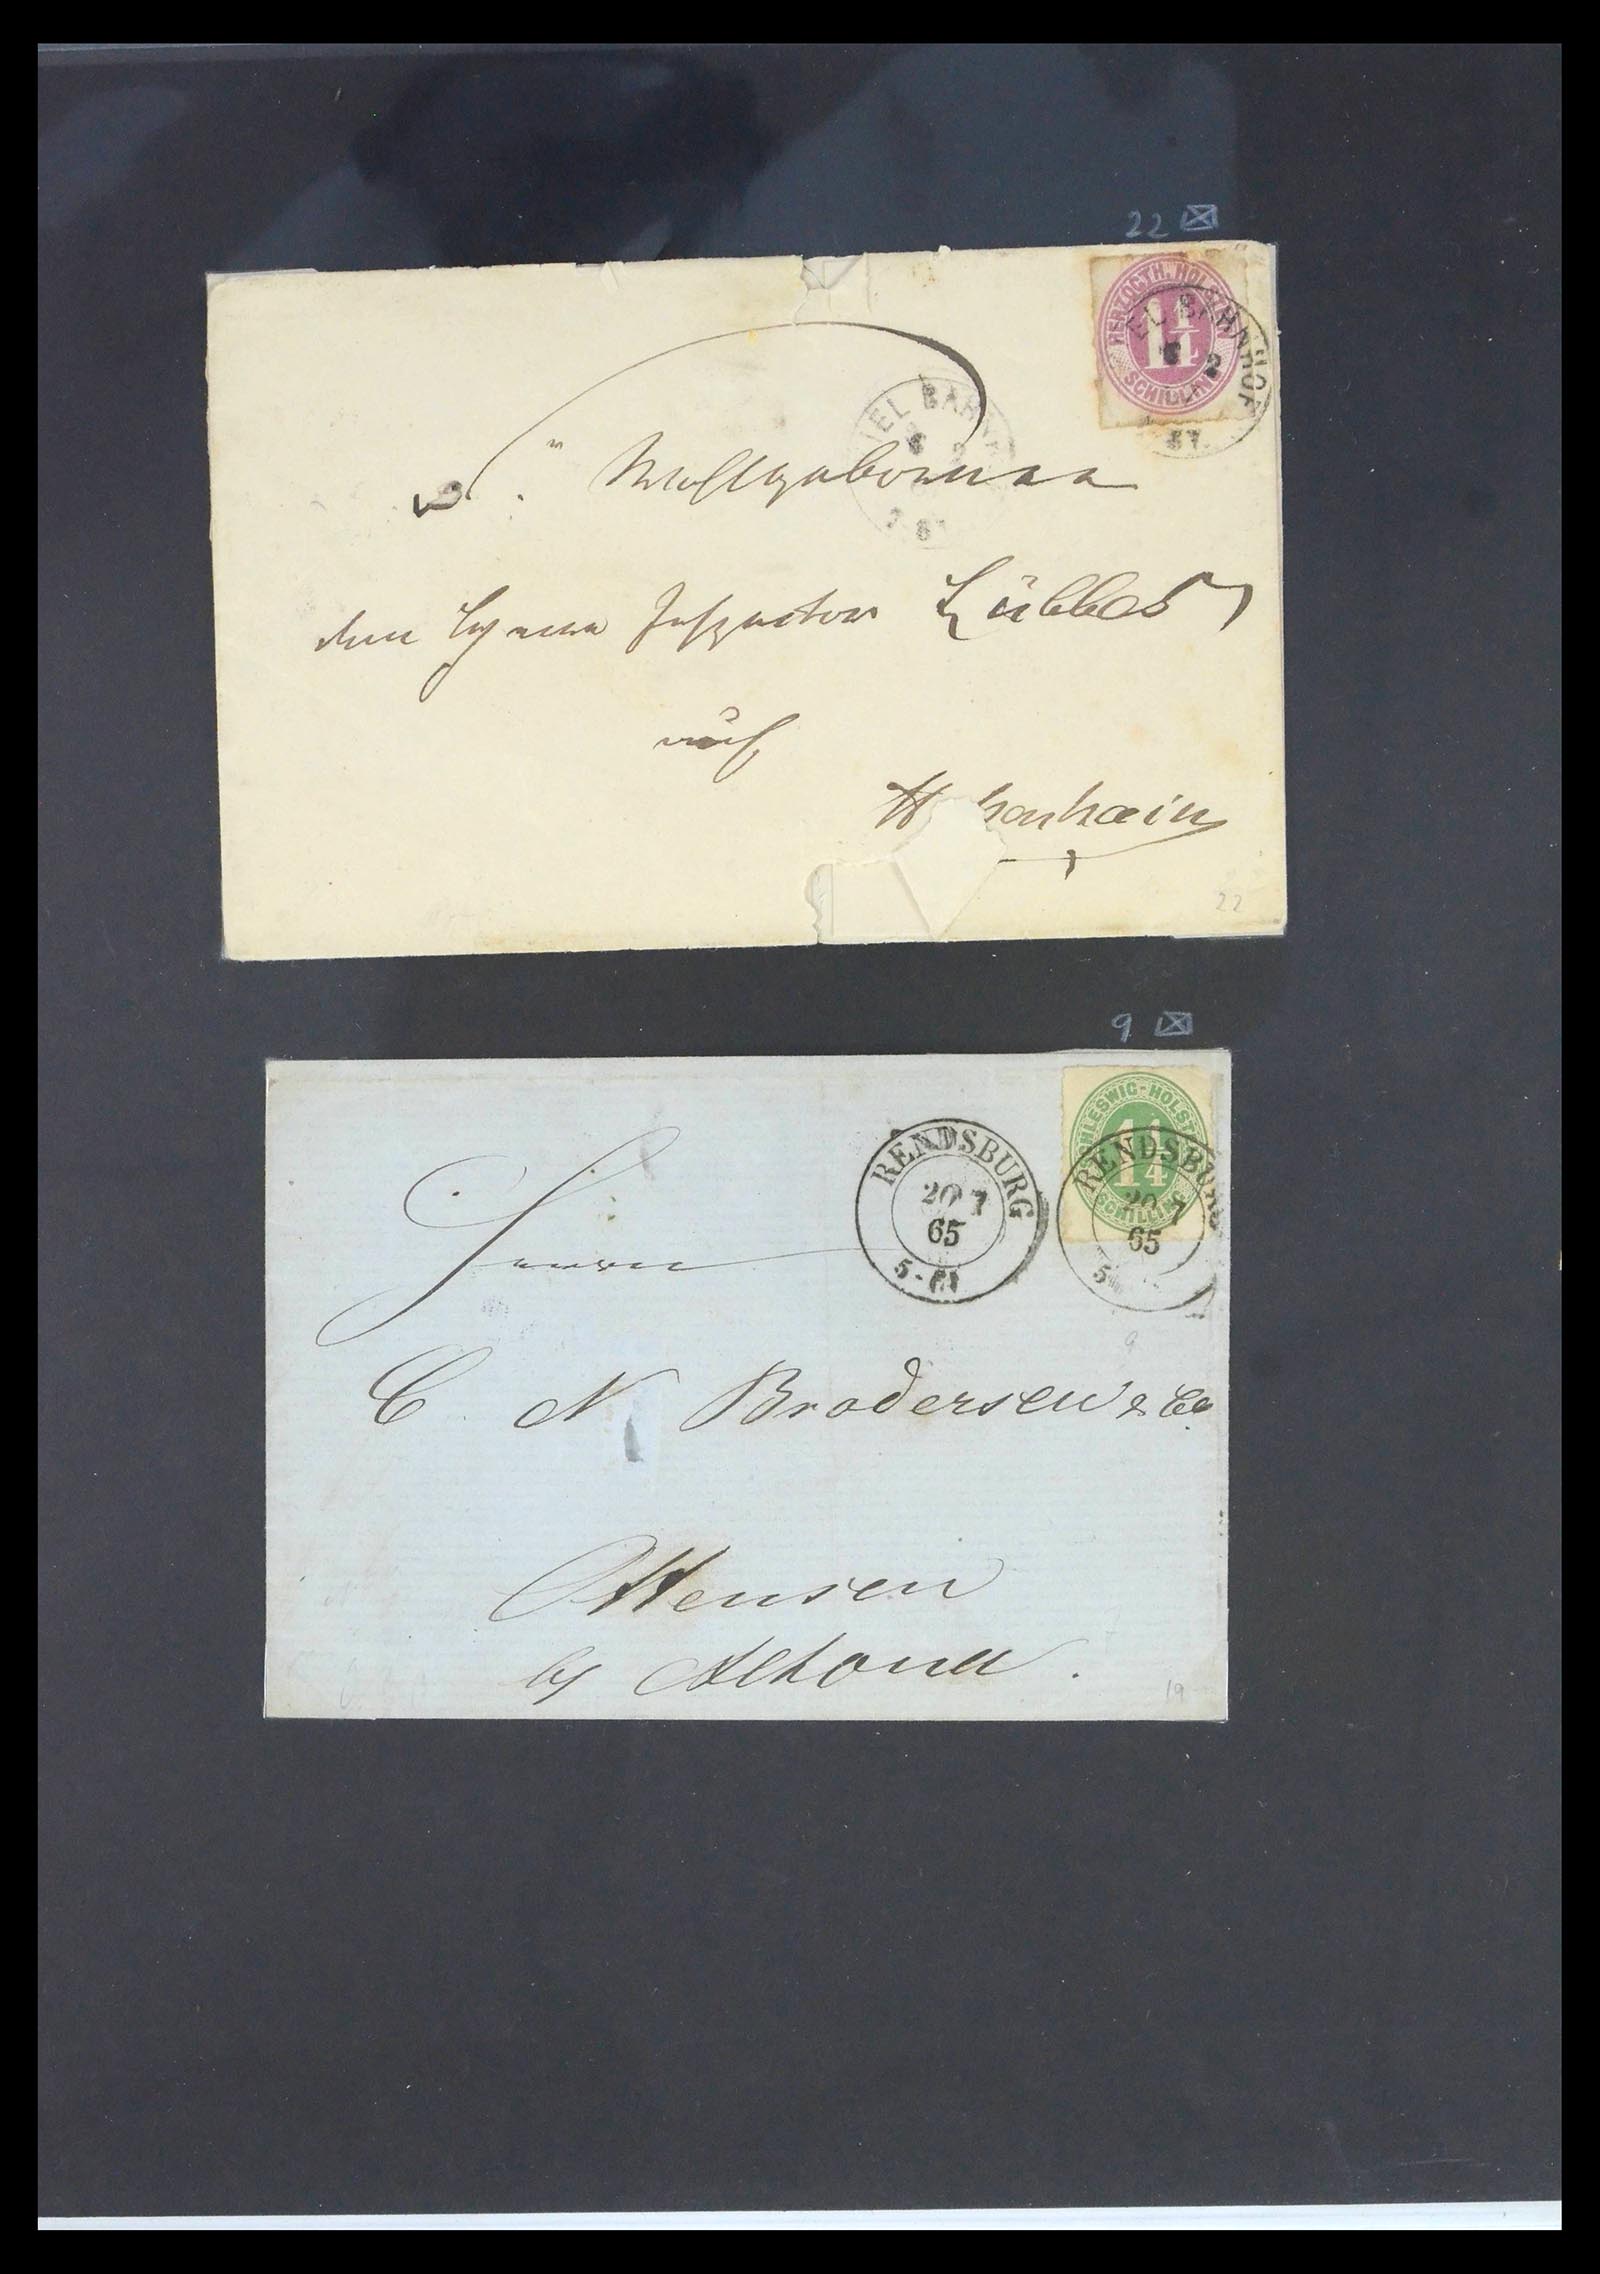 22
HERZOGTH. HOLST
1 1/4
SCHILLING
EL BAHNHOF
8 2
67
IEL BAHN
7 6
Wohlgeboren
dem Herrn Inspector Lübbes
auf
H henhain
22
9
HLESWIG-HOLST
1 1/4
SCHILLIN
RENDSBURG
20 7
65
5-6
RENDSBURG
20 7
65
5
Herrn
C N Brodersen & Co
Ottensen
by Altona.
9
19